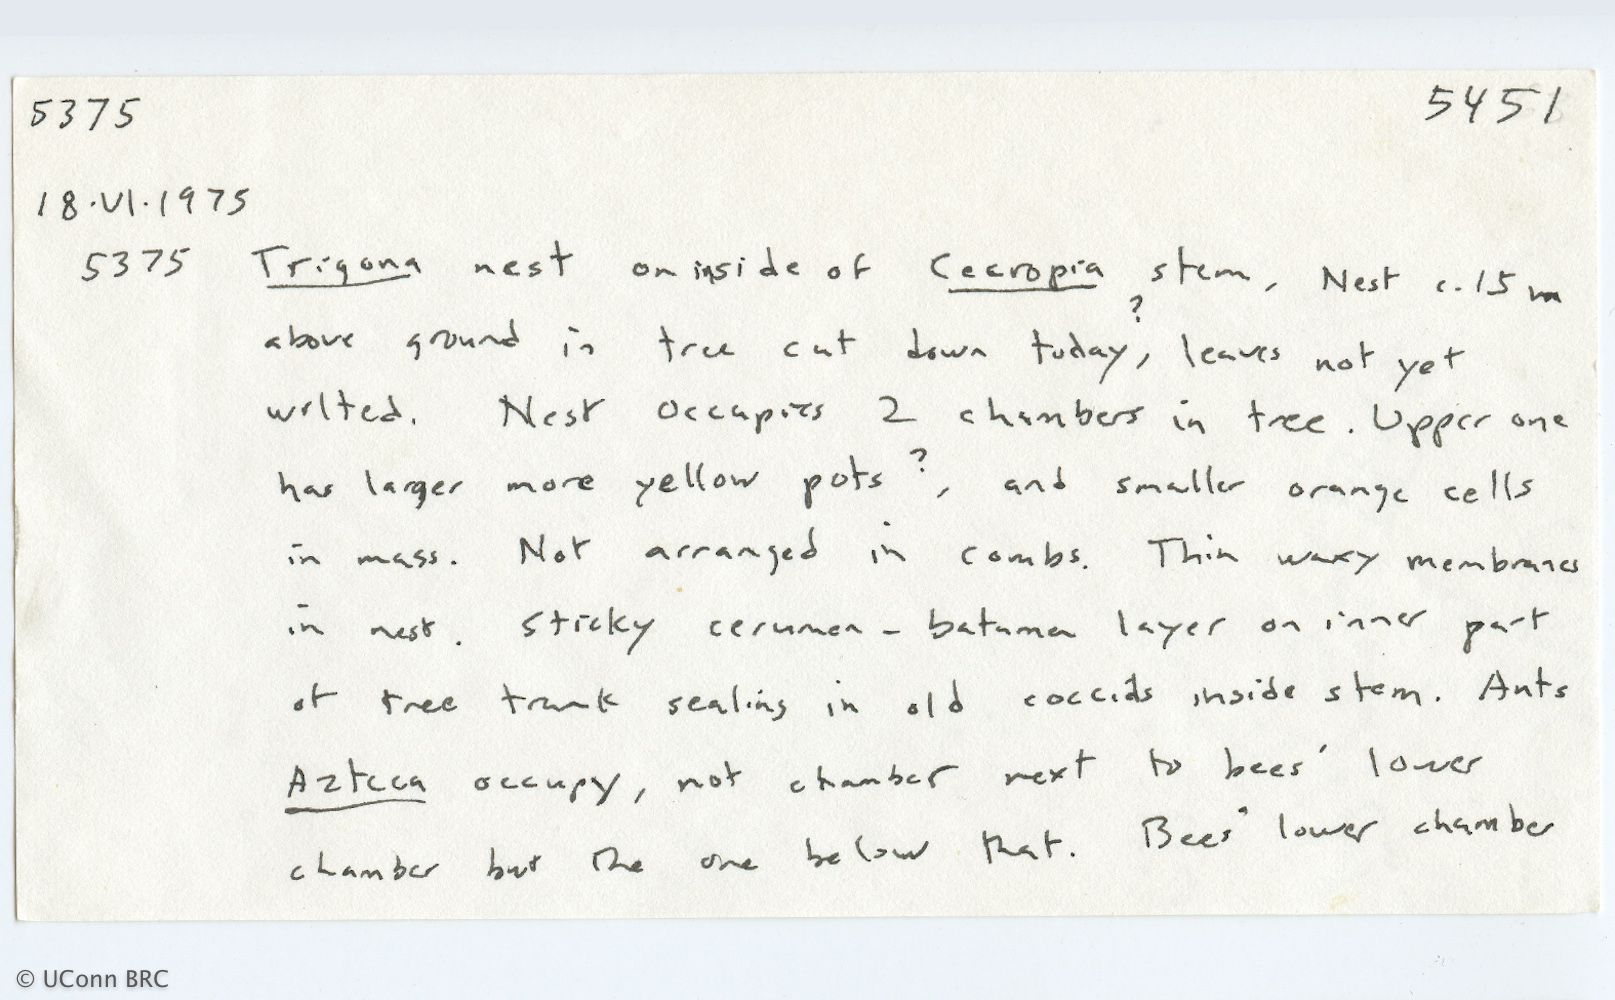 5375 5451
18·VI·1975
5375 Trigona nest on inside of Cecropia stem, Nest c. 15 m
above ground in tree cut down today?, leaves not yet
wilted. Nest occupies 2 chambers in tree. Upper one
has larger more yellow pots?, and smaller orange cells
in mass. Not arranged in combs. Thin waxy membranes
in nest. Sticky cerumen - batumen layer on inner part
of tree trunk sealing in old coccids inside stem. Ants
Azteca occupy, not chamber next to bees' lower
chamber but the one below that. Bees' lower chamber
© UConn BRC